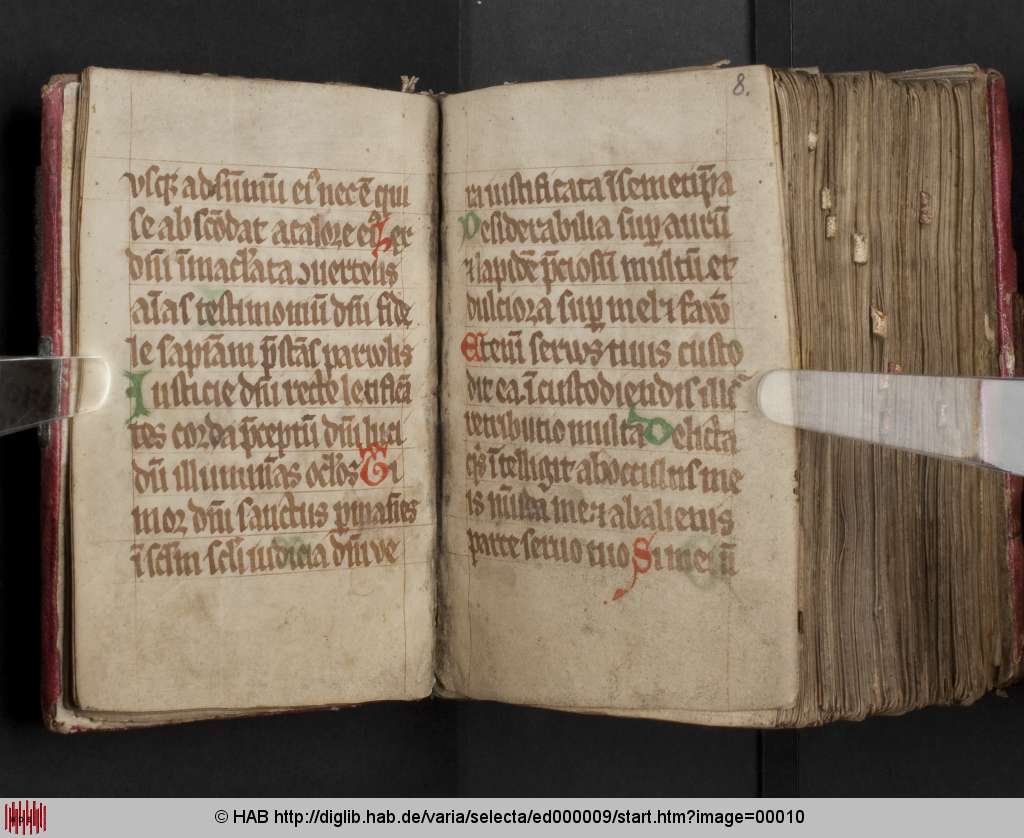 vsq3 ad sūmū eiꝰ nec ē qui
se abscōdat a calore eiꝰ Lex
dn̄i īmacl̓ata ↄuertens
aīas testimoniū dn̄i fide
le sapīam p̄stās paruulis
Iusticie dn̄i recte letificā
tes corda p̄ceptū dn̄i luci
dū illuminās ocl̓os Ti
mor dn̄i sanctus ꝑmanēs
ī sclm̄ scl̓i iudicia dn̄i ve
8.
ra iustificata ī semetip̄a
Desiderabilia suꝑ aurū
⁊ lapidē p̄ciosū multū et
dulciora suꝑ mel ⁊ favū
Eteni̅ seruus tuus custo
dit ea ī custodiendis ill̓
retributio multa Delicta
q̓s ītelligit ab occultis me
is mūda me ⁊ ab alienis
parce seruo tuo Si mei n̄
© HAB http://diglib.hab.de/varia/selecta/ed000009/start.htm?image=00010